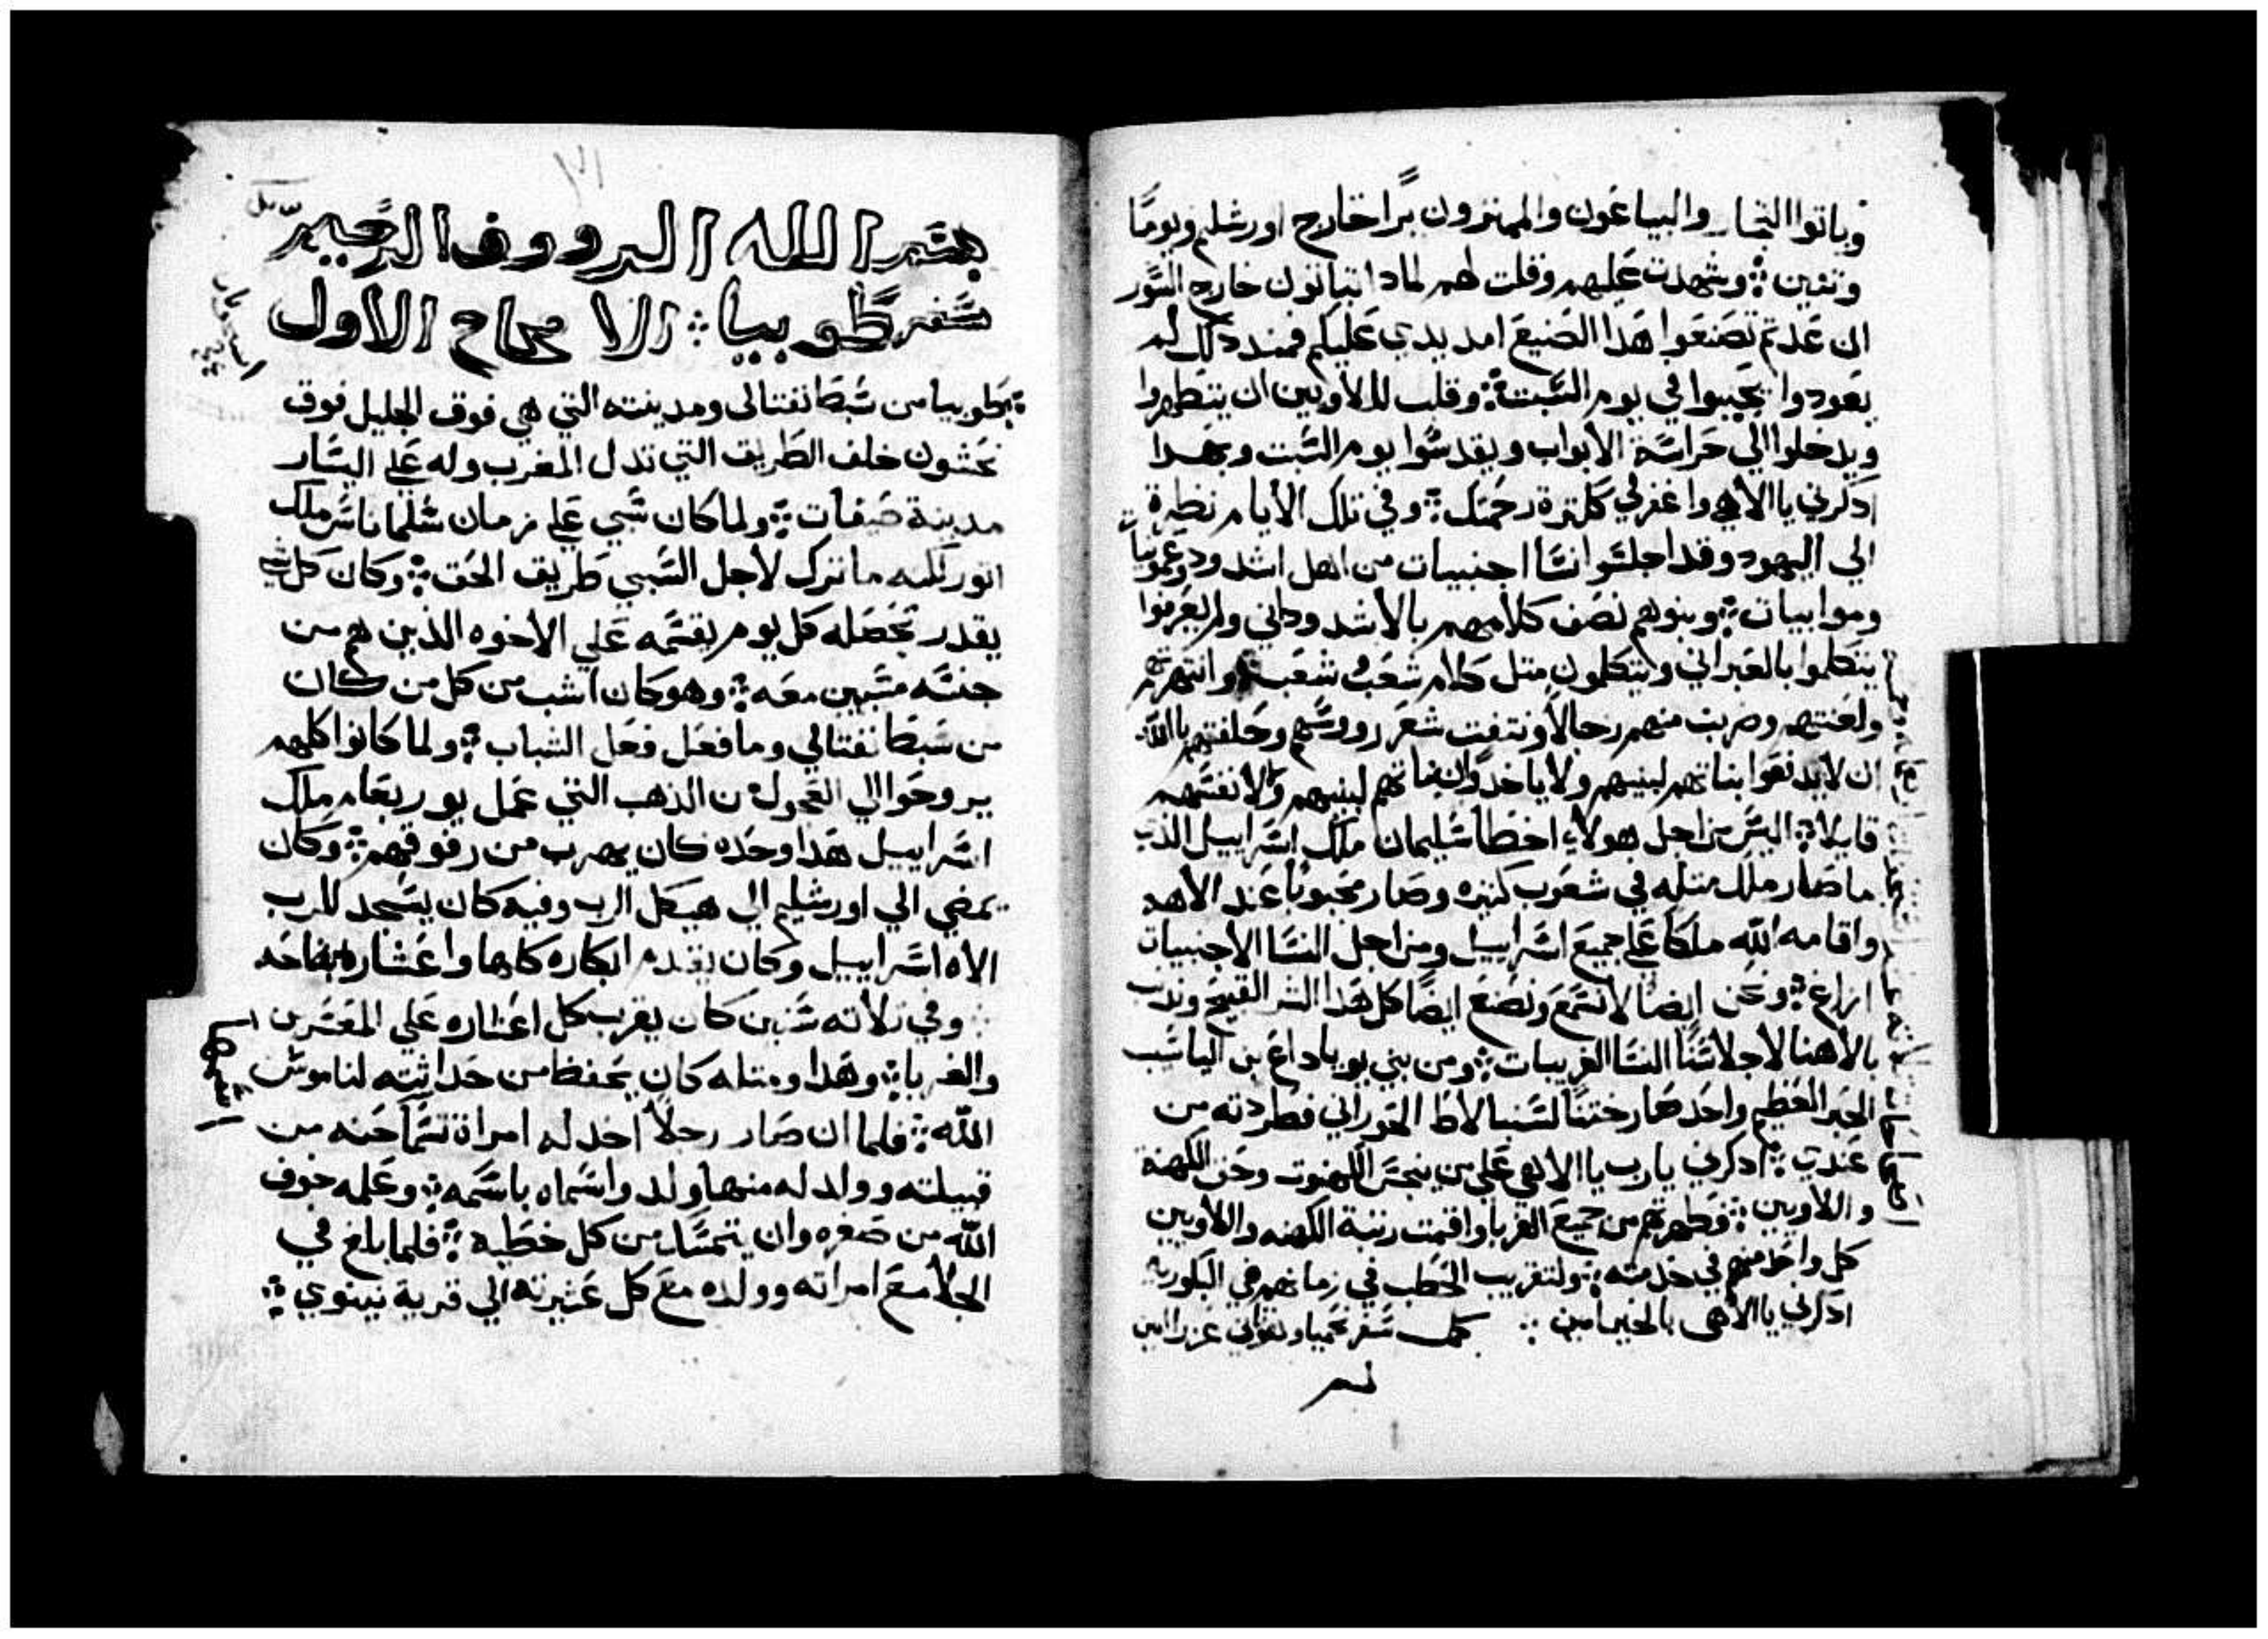 وباتوا التجار والبياعون والممتزون برا خارج اورشليم ويومًا
وتنين ⁘ وشهدت عليهم وقلت لهم لمادا تباتون خارج السور
ان عدتم تصنعوا هدا الصنيع امد يدي عليكم فمند دلك لم
يعودوا يجيبوا في يوم السبت ⁘ وقلت للاويين ان يتطهروا
ويدخلوا الي حراسة الابواب ويقدسوا يوم السبت وبهدا
ادكرني يا الاهي واغفر لي ككترة رحمتك ⁘ وفي تلك الايام نظرة
الي اليهود وقد اجلسوا نسا اجنبيات من اهل اشدود وعمونيات
وموابيات ⁘ وبنوهم نصف كلامهم بالاشدوداني ولم يعرفوا
يتكلموا بالعبراني ويتكلمون متل كلام شعب شعب وانتهرتهم
ولعنتهم وضربت منهم رجالا ونتفت شعر رووسهم وحلفتهم بالله
ان لا يدفعوا بناتهم لبنيهم ولا ياخدوا بناتهم لبنيهم ولا نفسهم
قايلا ⁘ اليس من اجل هولاء اخطا سليمان ملك اسراييل الذي
ما صار ملك متله في شعوب كتيره وصار محبوبا عند الاهه
واقامه الله ملكا علي جميع اسراييل ومن اجل النسا الاجنبيات
ازاغ ⁘ ونحن ايضا لا نسمع ونصنع ايضا كل هدا الشر القبيح ونذنب
بالاهنا لاجلاسنا النسا الغريبات ⁘ ومن بني يوياداع بن الياشب
الحبر العظيم واحد صار ختنا لسنبالاط الحوراني فطردته من
عندي ⁘ ادكرني يارب يا الاهي علي من ينجس الكهنوت وحق الكهنة
واللاويين ⁘ فطهرتهم من جميع الغربا واقمت رتبة الكهنه واللاويين
كل واحد منهم في خدمته ⁘ ولتقريب الحطب في زمانهم وفي البكوريه
ادكرني يا الاهي بالخير امين ⁘ كمل سفر نحميا وهو تاني عزرا امين
بسم الله الرووف الرحيم
سفر طوبيا ⁘ الاصحاح الاول
طوبيا من سبط نفتالي ومدينته التي هي فوق الجليل فوق
نحشون خلف الطريق التي تدل المغرب وله علي اليسار
مدينة صيفات ⁘ ولما كان سبي علي زمان سلماناسر ملك
اتور لكنه ما ترك لاجل السبي طريق الحق ⁘ وكان كل شي
يقدر يحصله كل يوم يقسمه علي الاخوه الذين هم من
جنسه مسبين معه ⁘ وهو كان اشب من كل من كان
من سبط نفتالي وما فعل فعل الشباب ⁘ ولما كانوا كلهم
يروحوا الي العجول من الذهب التي عمل يوربعام ملك
اسراييل هدا وحده كان يهرب من رفوقهم ⁘ وكان
يمضي الي اورشليم الي هيكل الرب وفيه كان يسجد للرب
الاه اسراييل وكان يقدم ابكاره كلها واعشاره بنصاحه
وفي تلاته سنين كان يقرب كل اعشاره علي المعشرين
والغربا ⁘ وهدا ومتله كان يحفظ من حداثيته لناموس
الله ⁘ فلما ان صار رجلا اخد له امراة تسما حنه من
قبيلته وولد له منها ولد واسماه باسمه ⁘ وعلمه خوف
الله من صغره وان يتمسك من كل خطية ⁘ فلما بلغ في
الجلا مع امراته وولده مع كل عشيرته الي قرية نينوي ⁘